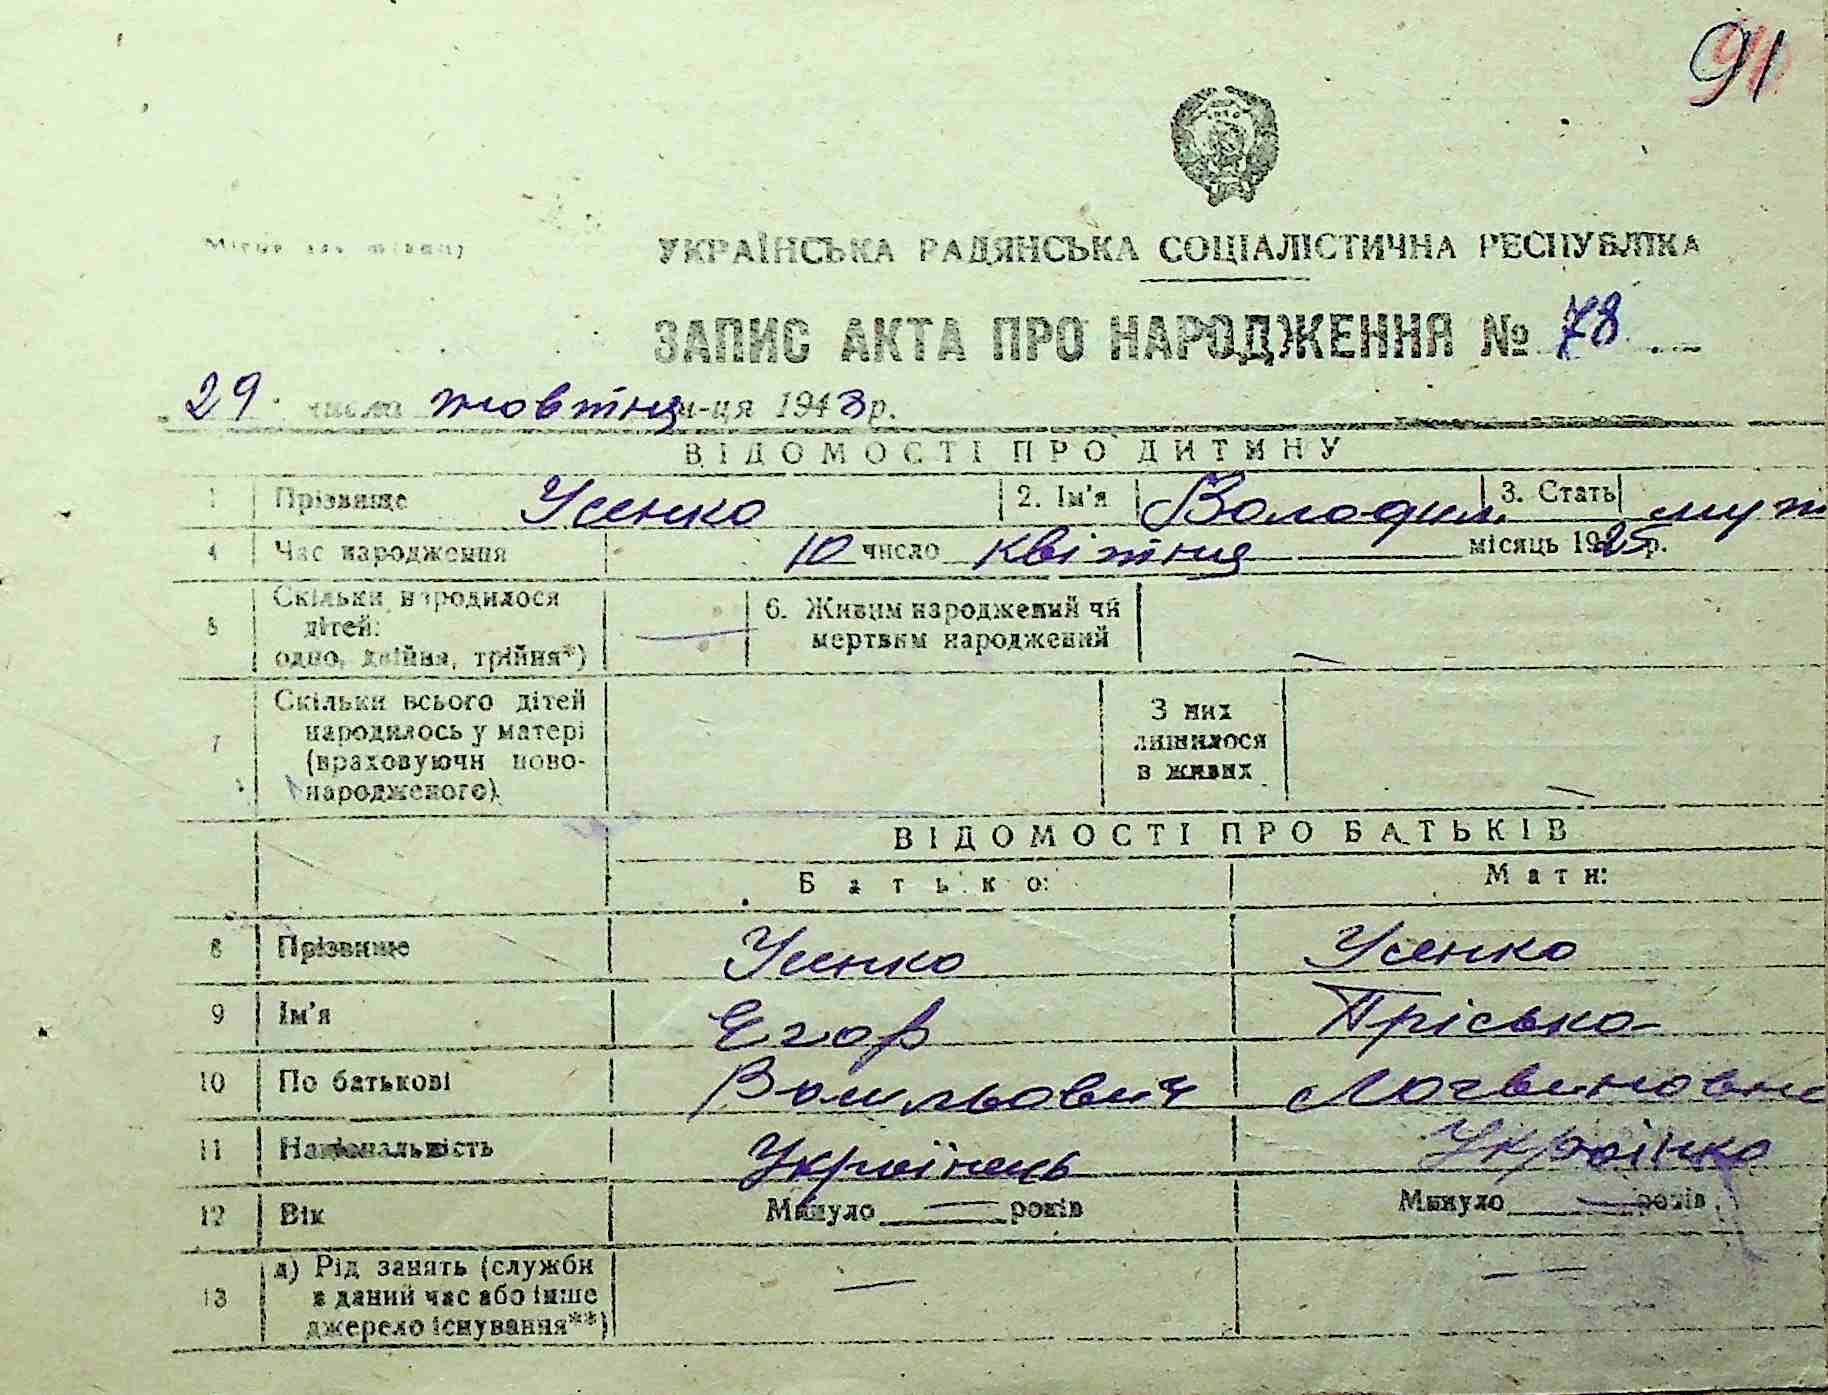 91
УКРАЇНСЬКА РАДЯНСЬКА СОЦІАЛІСТИЧНА РЕСПУБЛІКА
ЗАПИС АКТА ПРО НАРОДЖЕННЯ № 78
29 числа жовтня м-ця 1943 р.
ВІДОМОСТІ ПРО ДИТИНУ
1 Прізвище Усенко 2. Ім'я Володим. 3. Стать муж
4 Час народження 10 число квітня місяць 1925 р.
5 Скільки народилося дітей: одно, двійня, трійня*) — 6. Живим народжений чи мертвим народжений —
7 Скільки всього дітей народилось у матері (враховуючи новонародженого). З них лишилося в живих —
ВІДОМОСТІ ПРО БАТЬКІВ
Батько: Мати:
8 Прізвище Усенко Усенко
9 Ім'я Егор Пріська
10 По батькові Васильович Логвиновна
11 Національність Українець Українка
12 Вік Минуло — років Минуло — років
13 а) Рід занять (служби в даний час або інше джерело існування**) — —